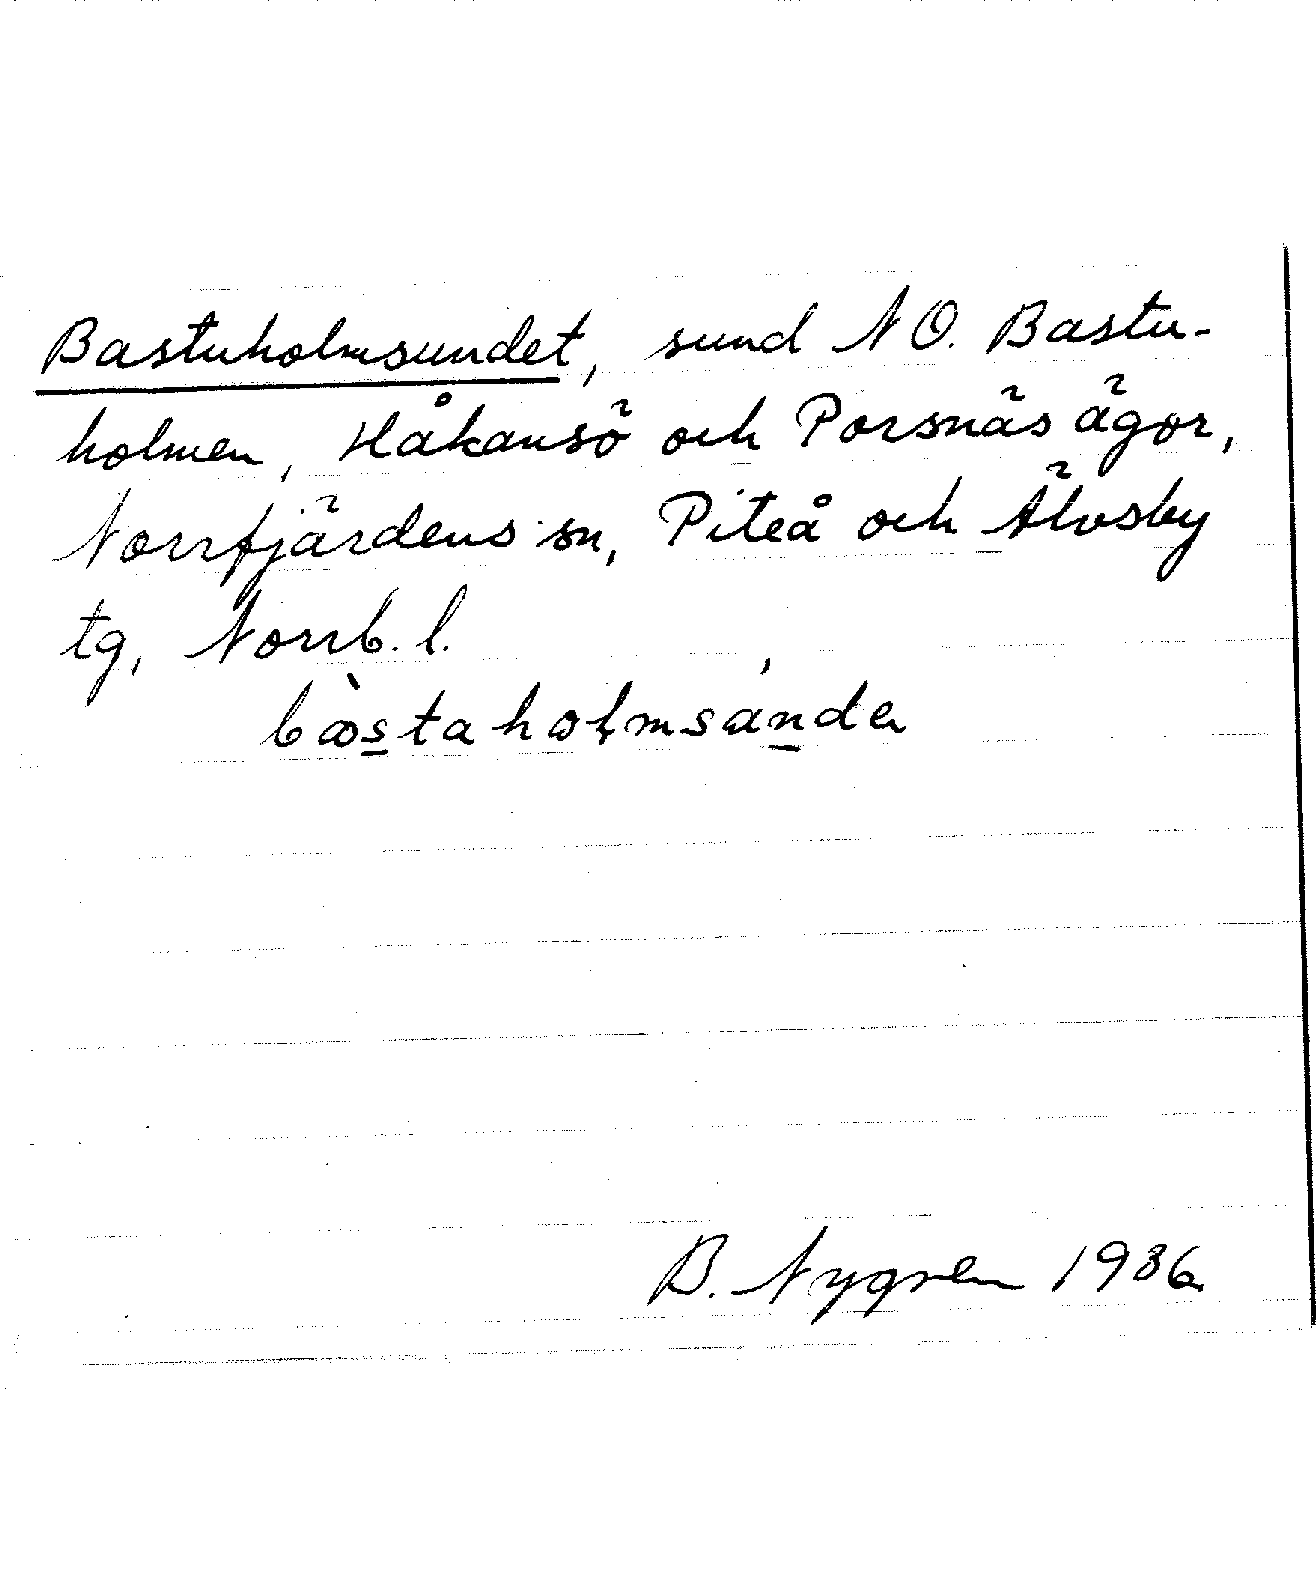 Bastuholmsundet, sund NO. Bastu-
holmen, Håkansö och Porsnäs ägor,
Norrfjärdens sn, Piteå och Älvsby
tg, Norrb. l.
B. Nygren 1936